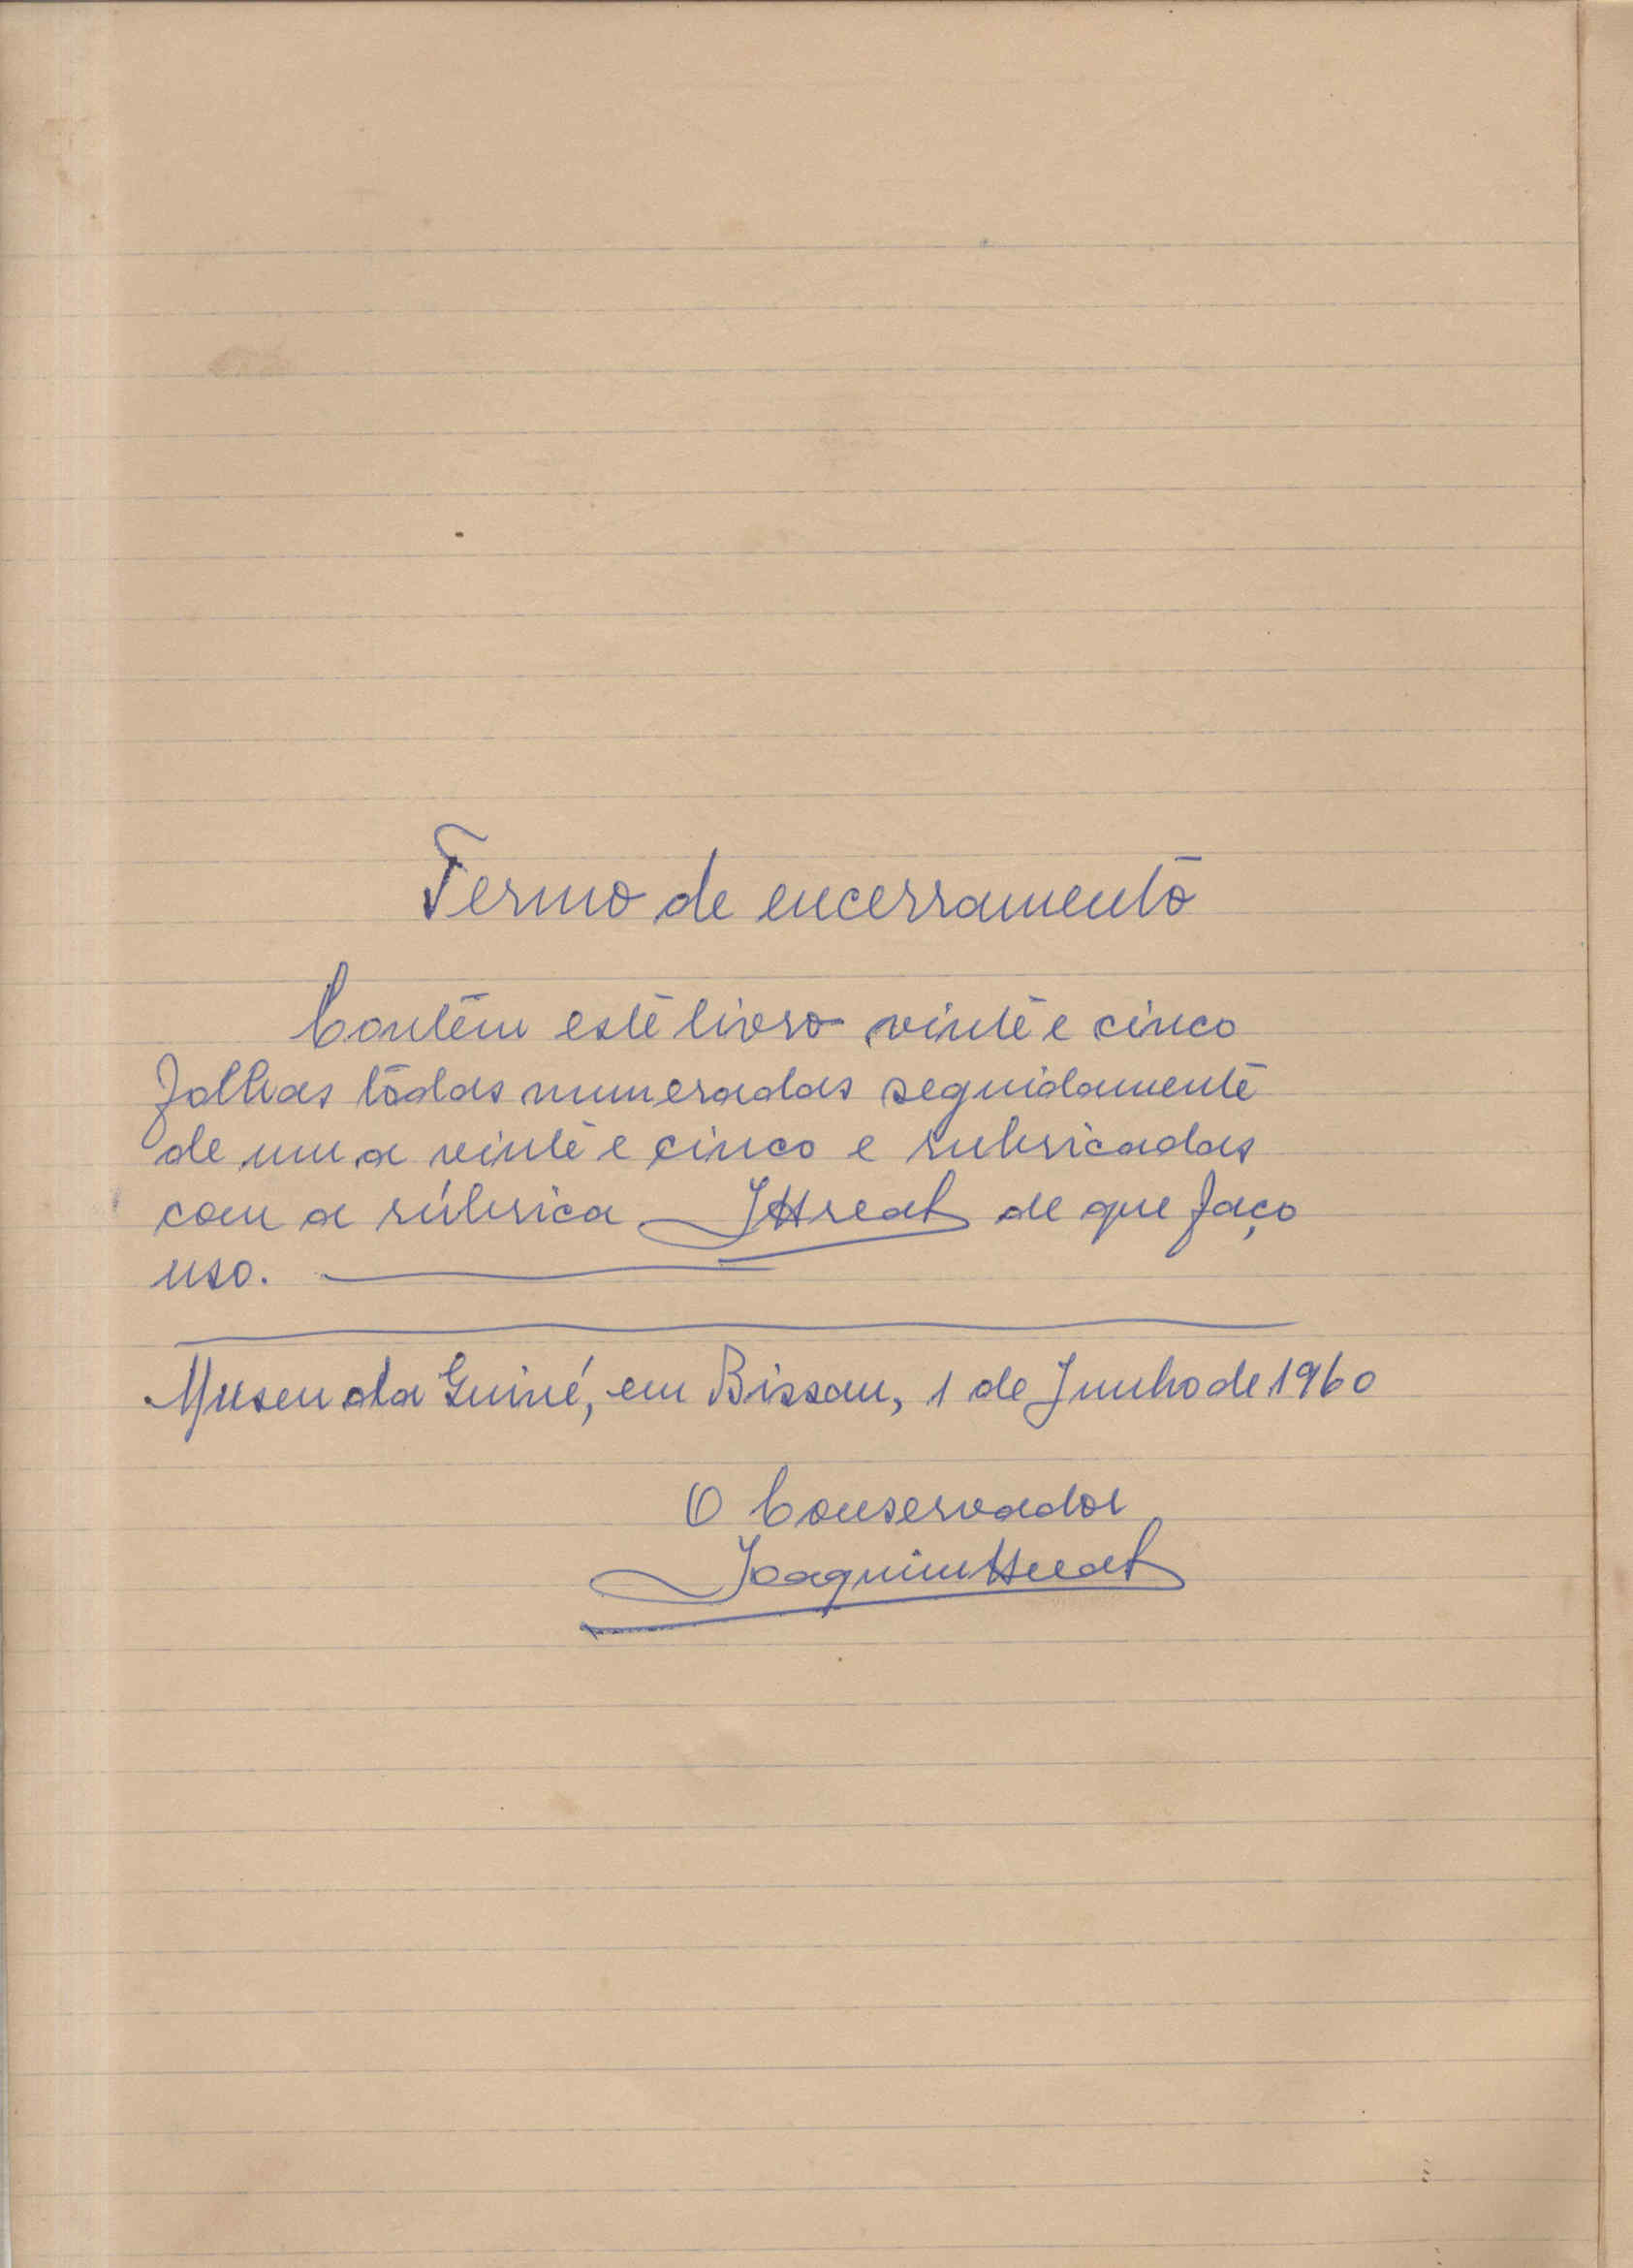 Termo de encerramento
Contém este livro vinte e cinco
folhas tôdas numeradas seguidamente
de um a vinte e cinco e rubricadas
com a rúbrica de que faço
uso.
Museu da Guiné, em Bissau, 1 de Junho de 1960
O Conservador
Joaquim